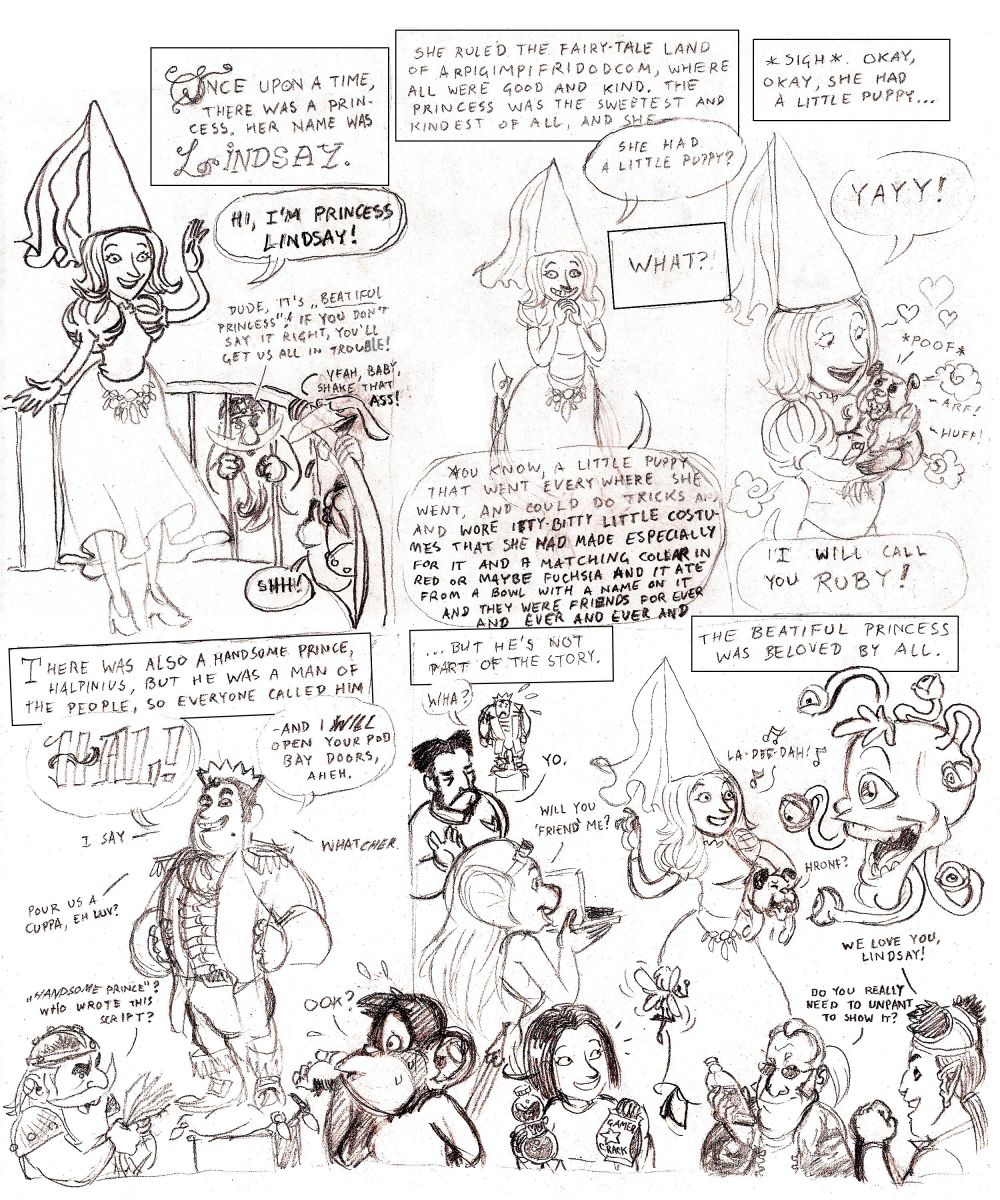 ONCE UPON A TIME,
THERE WAS A PRIN-
CESS. HER NAME WAS
LINDSAY.
HI, I'M PRINCESS
LINDSAY!
DUDE, IT'S „BEATIFUL
PRINCESS"! IF YOU DON'T
SAY IT RIGHT, YOU'LL
GET US ALL IN TROUBLE!
YEAH, BABY,
SHAKE THAT
ASS!
SHH!
SHE RULED THE FAIRY-TALE LAND
OF ARPIGIMPIFRIDODCOM, WHERE
ALL WERE GOOD AND KIND. THE
PRINCESS WAS THE SWEETEST AND
KINDEST OF ALL, AND SHE
SHE HAD
A LITTLE PUPPY?
WHAT?!
YOU KNOW, A LITTLE PUPPY
THAT WENT EVERYWHERE SHE
WENT, AND COULD DO TRICKS AN
AND WORE ITTY-BITTY LITTLE COSTU-
MES THAT SHE HAD MADE ESPECIALLY
FOR IT AND A MATCHING COLLAR IN
RED OR MAYBE FUCHSIA AND IT ATE
FROM A BOWL WITH A NAME ON IT
AND THEY WERE FRIENDS FOR EVER
AND EVER AND EVER AND
*SIGH*. OKAY,
OKAY, SHE HAD
A LITTLE PUPPY...
YAYY!
*POOF*
-ARF!
-HUFF!
I WILL CALL
YOU RUBY!
THERE WAS ALSO A HANDSOME PRINCE,
HALPINIUS, BUT HE WAS A MAN OF
THE PEOPLE, SO EVERYONE CALLED HIM
HAL!
-AND I WILL
OPEN YOUR POD
BAY DOORS,
AHEM.
I SAY
WHATCHER.
POUR US A
CUPPA, EH LUV?
„HANDSOME PRINCE"?
WHO WROTE THIS
SCRIPT?
OOK?
...BUT HE'S NOT
PART OF THE STORY.
WHA?
YO.
WILL YOU
'FRIEND' ME?
THE BEATIFUL PRINCESS
WAS BELOVED BY ALL.
LA-DEE-DAH!
HRONF?
WE LOVE YOU,
LINDSAY!
DO YOU REALLY
NEED TO UNPANT
TO SHOW IT?
GAMER
CRACK